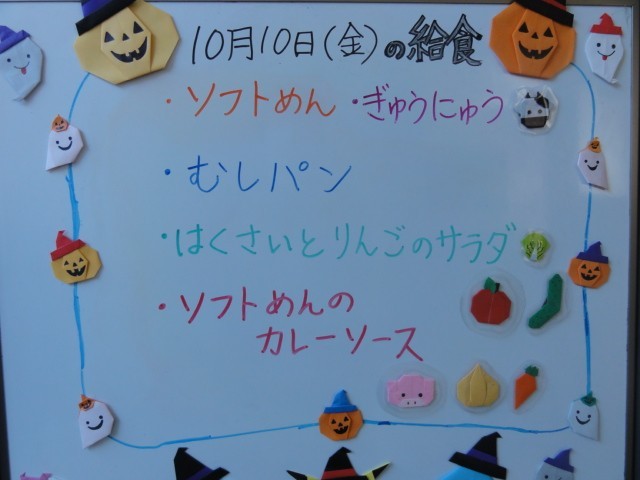 10月10日(金)の給食
・ソフトめん ・ぎゅうにゅう
・むしパン
・はくさいとりんごのサラダ
・ソフトめんの
カレーソース